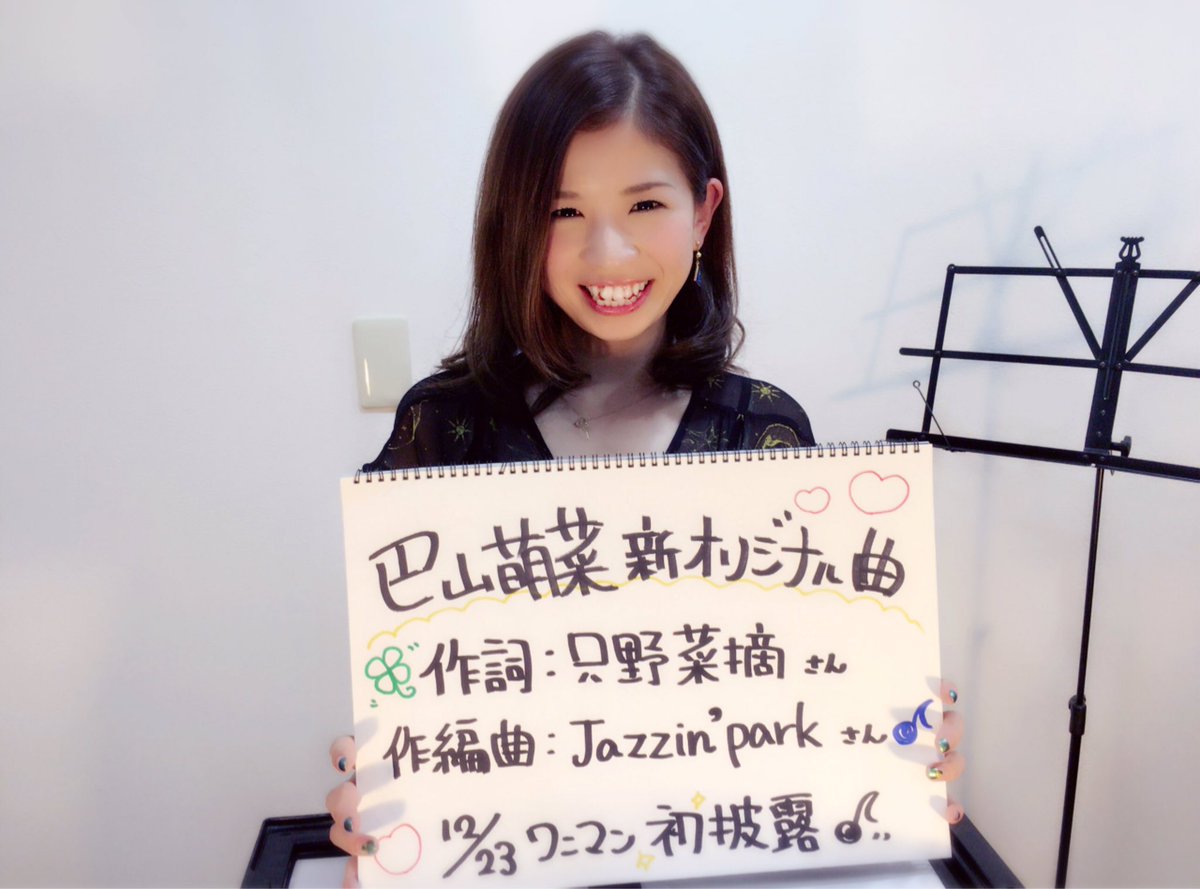 巴山萌菜 新オリジナル曲
作詞：只野菜摘さん
作編曲：Jazzin'parkさん
12/23 ワンマン 初披露